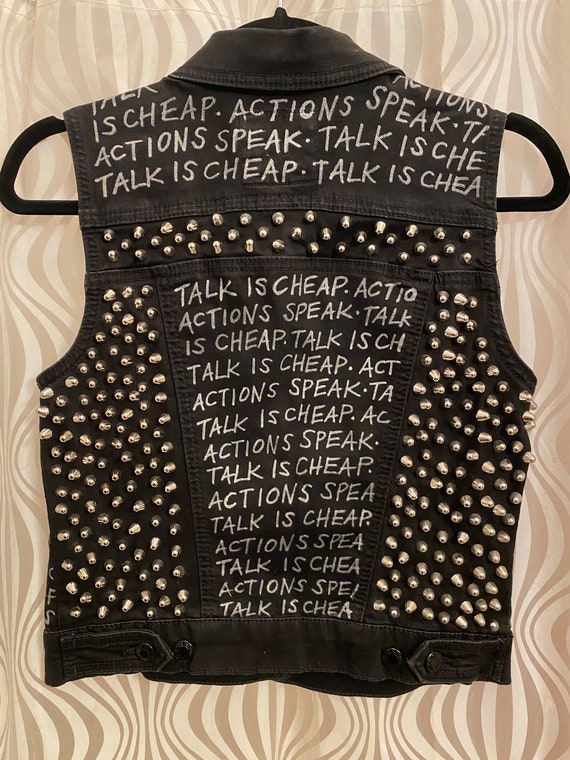 TALK IS CHEAP. ACTIONS
IS CHEAP. ACTIONS SPEAK.
ACTIONS SPEAK. TALK IS CHE
TALK IS CHEAP. TALK IS CHEA
TALK IS CHEAP. ACTIO
ACTIONS SPEAK. TALK
IS CHEAP. TALK IS CH
TALK IS CHEAP. ACT
ACTIONS SPEAK. TA
TALK IS CHEAP. AC
ACTIONS SPEAK.
TALK IS CHEAP.
ACTIONS SPEA
TALK IS CHEAP.
ACTIONS SPEA
TALK IS CHEA
ACTIONS SPE
TALK IS CHEA